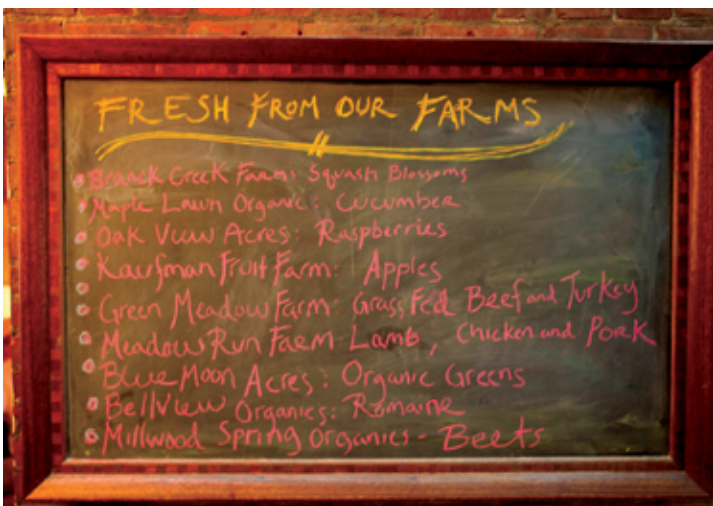 FRESH FROM OUR FARMS
Creek Farms: Squash Blossoms
Maple Lawn Organic: Cucumber
Oak View Acres: Raspberries
Kaufman Fruit Farm: Apples
Green Meadow Farm: Grass Fed Beef and Turkey
Meadow Run Farm: Lamb, Chicken and PORK
Blue Moon Acres: Organic Greens
BellView Organics: Romaine
Millwood Spring Organics - Beets